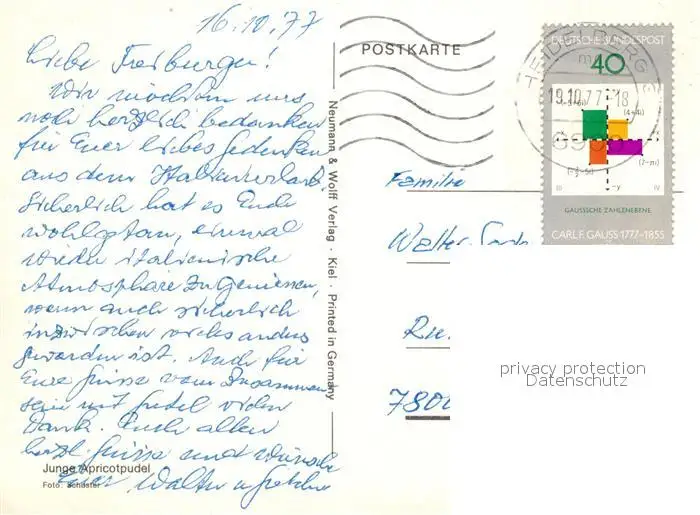 16.10.77
Liebe Freiburger!
Wir möchten uns
noch herzlich bedanken
für Euer liebes Gedenken
aus dem Italienurlaub.
Sicherlich hat es Euch
wohlgetan, einmal
wieder italienische
Atmosphäre zu genießen,
wenn auch sicherlich
inzwischen vieles anders
geworden ist. Auch für
Eure Grüsse vom Zusammen
sein mit vielen
Dank. Euch allen
herzl. Grüsse und Wünsche
Eure Walter u.
Junge Apricotpudel
Foto: Schuster
Neumann & Wolff Verlag · Kiel · Printed in Germany
POSTKARTE
DEUTSCHE BUNDESPOST
40
HEIDELBERG
19.10.77-18
(-5+6i)
(4+4i)
(7-πi)
III
-y
IV
GAUSSSCHE ZAHLENEBENE
CARL F. GAUSS 1777-1855
Familie
Walter
780
privacy protection
Datenschutz